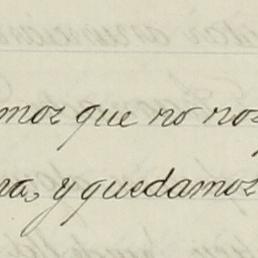 mos que no nos
ra, y quedamos